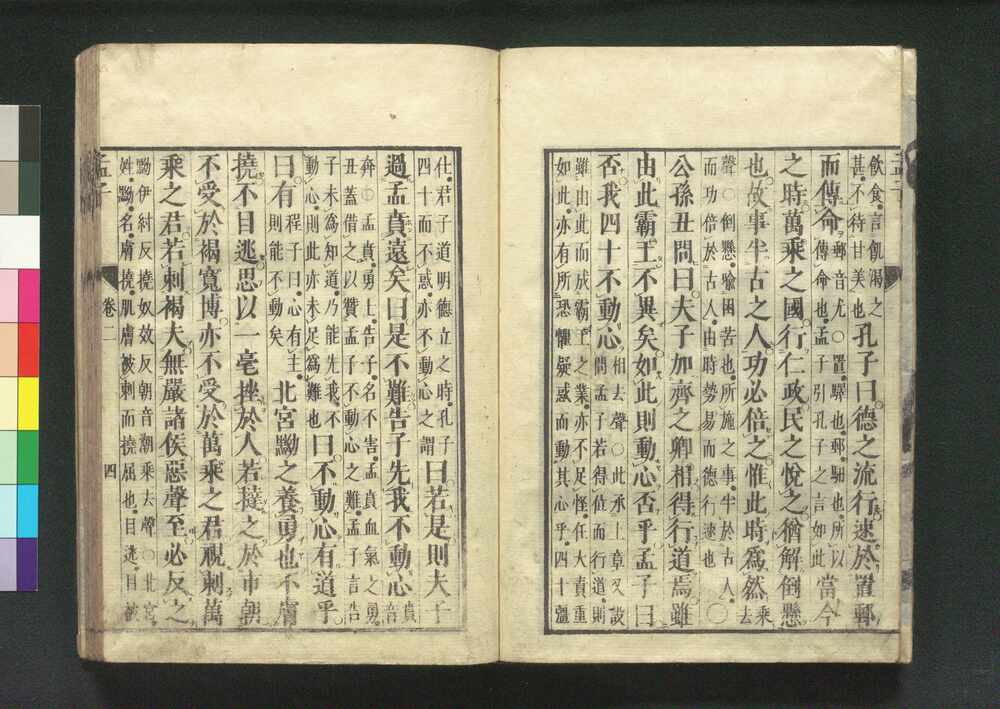 飲食。言飢渴之
甚。不待甘美也
孔子曰。德之流行。速於置郵
而傳命。
郵音尤○置。驛也。郵。馹也。所以
傳命也。孟子引孔子之言如此
當今
之時。萬乘之國。行仁政。民之悅之。猶解倒懸
也。故事半古之人。功必倍之。惟此時爲然。
乘
去
聲○倒懸。喻困苦也。所施之事。半於古人。
而功倍於古人。由時勢易而德行速也
○
公孫丑問曰。夫子加齊之卿相。得行道焉。雖
由此霸王不異矣。如此則動心否乎。孟子曰
否。我四十不動心。
相去聲○此承上章又設
問孟子若得位而行道。則
雖由此而成霸王之業。亦不足怪。任大責重
如此。亦有所恐懼疑惑而動其心乎。四十彊
仕。君子道明德立之時。孔子
四十而不惑。亦不動心之謂
曰。若是則夫子
過孟賁遠矣。曰。是不難。告子先我不動心。
賁
音
奔○孟賁。勇士。告子。名不害。孟賁血氣之勇
丑蓋借之以贊孟子不動心之難。孟子言告
子未爲知道。乃能先我不
動心。則此亦未足爲難也
曰。不動心有道乎。
曰。有
程子曰。心有主。
則能不動矣
北宮黝之養勇也。不膚
撓。不目逃。思以一毫挫於人。若撻之於市朝
不受於褐寬博。亦不受於萬乘之君。視刺萬
乘之君。若刺褐夫。無嚴諸侯。惡聲至。必反之
黝伊糾反。撓奴效反。朝音潮。乘去聲。○北宮。
姓。黝。名。膚撓。肌膚被刺而撓屈也。目逃。目被
孟子
卷二
四